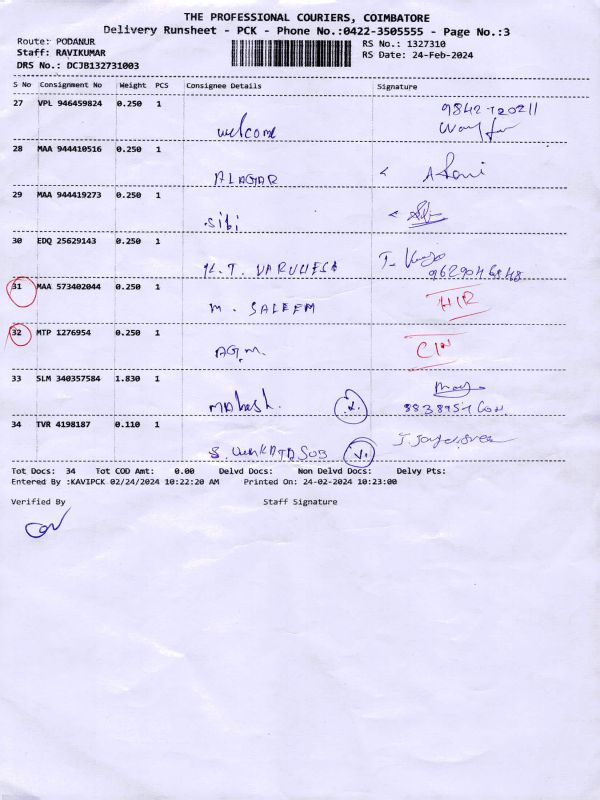 THE PROFESSIONAL COURIERS, COIMBATORE
Delivery Runsheet - PCK - Phone No.:0422-3505555 - Page No.:3
Route: PODANUR
RS No.: 1327310
Staff: RAVIKUMAR
RS Date: 24-Feb-2024
DRS No.: DCJB132731003
S No Consignment No Weight PCS Consignee Details Signature
27 VPL 946459824 0.250 1
welcome
28 MAA 944410516 0.250 1
ALAGAR
29 MAA 944419273 0.250 1
Sibi
30 EDQ 25629143 0.250 1
K. T.
31 MAA 573402044 0.250 1
M. SALEEM
32 MTP 1276954 0.250 1
AGM. CIN
33 SLM 340357584 1.830 1
Mahesh.
34 TVR 4198187 0.110 1
S. VENKATASUB
Tot Docs: 34 Tot COD Amt: 0.00 Delvd Docs: Non Delvd Docs: Delvy Pts:
Entered By :KAVIPCK 02/24/2024 10:22:20 AM Printed On: 24-02-2024 10:23:00
Verified By Staff Signature